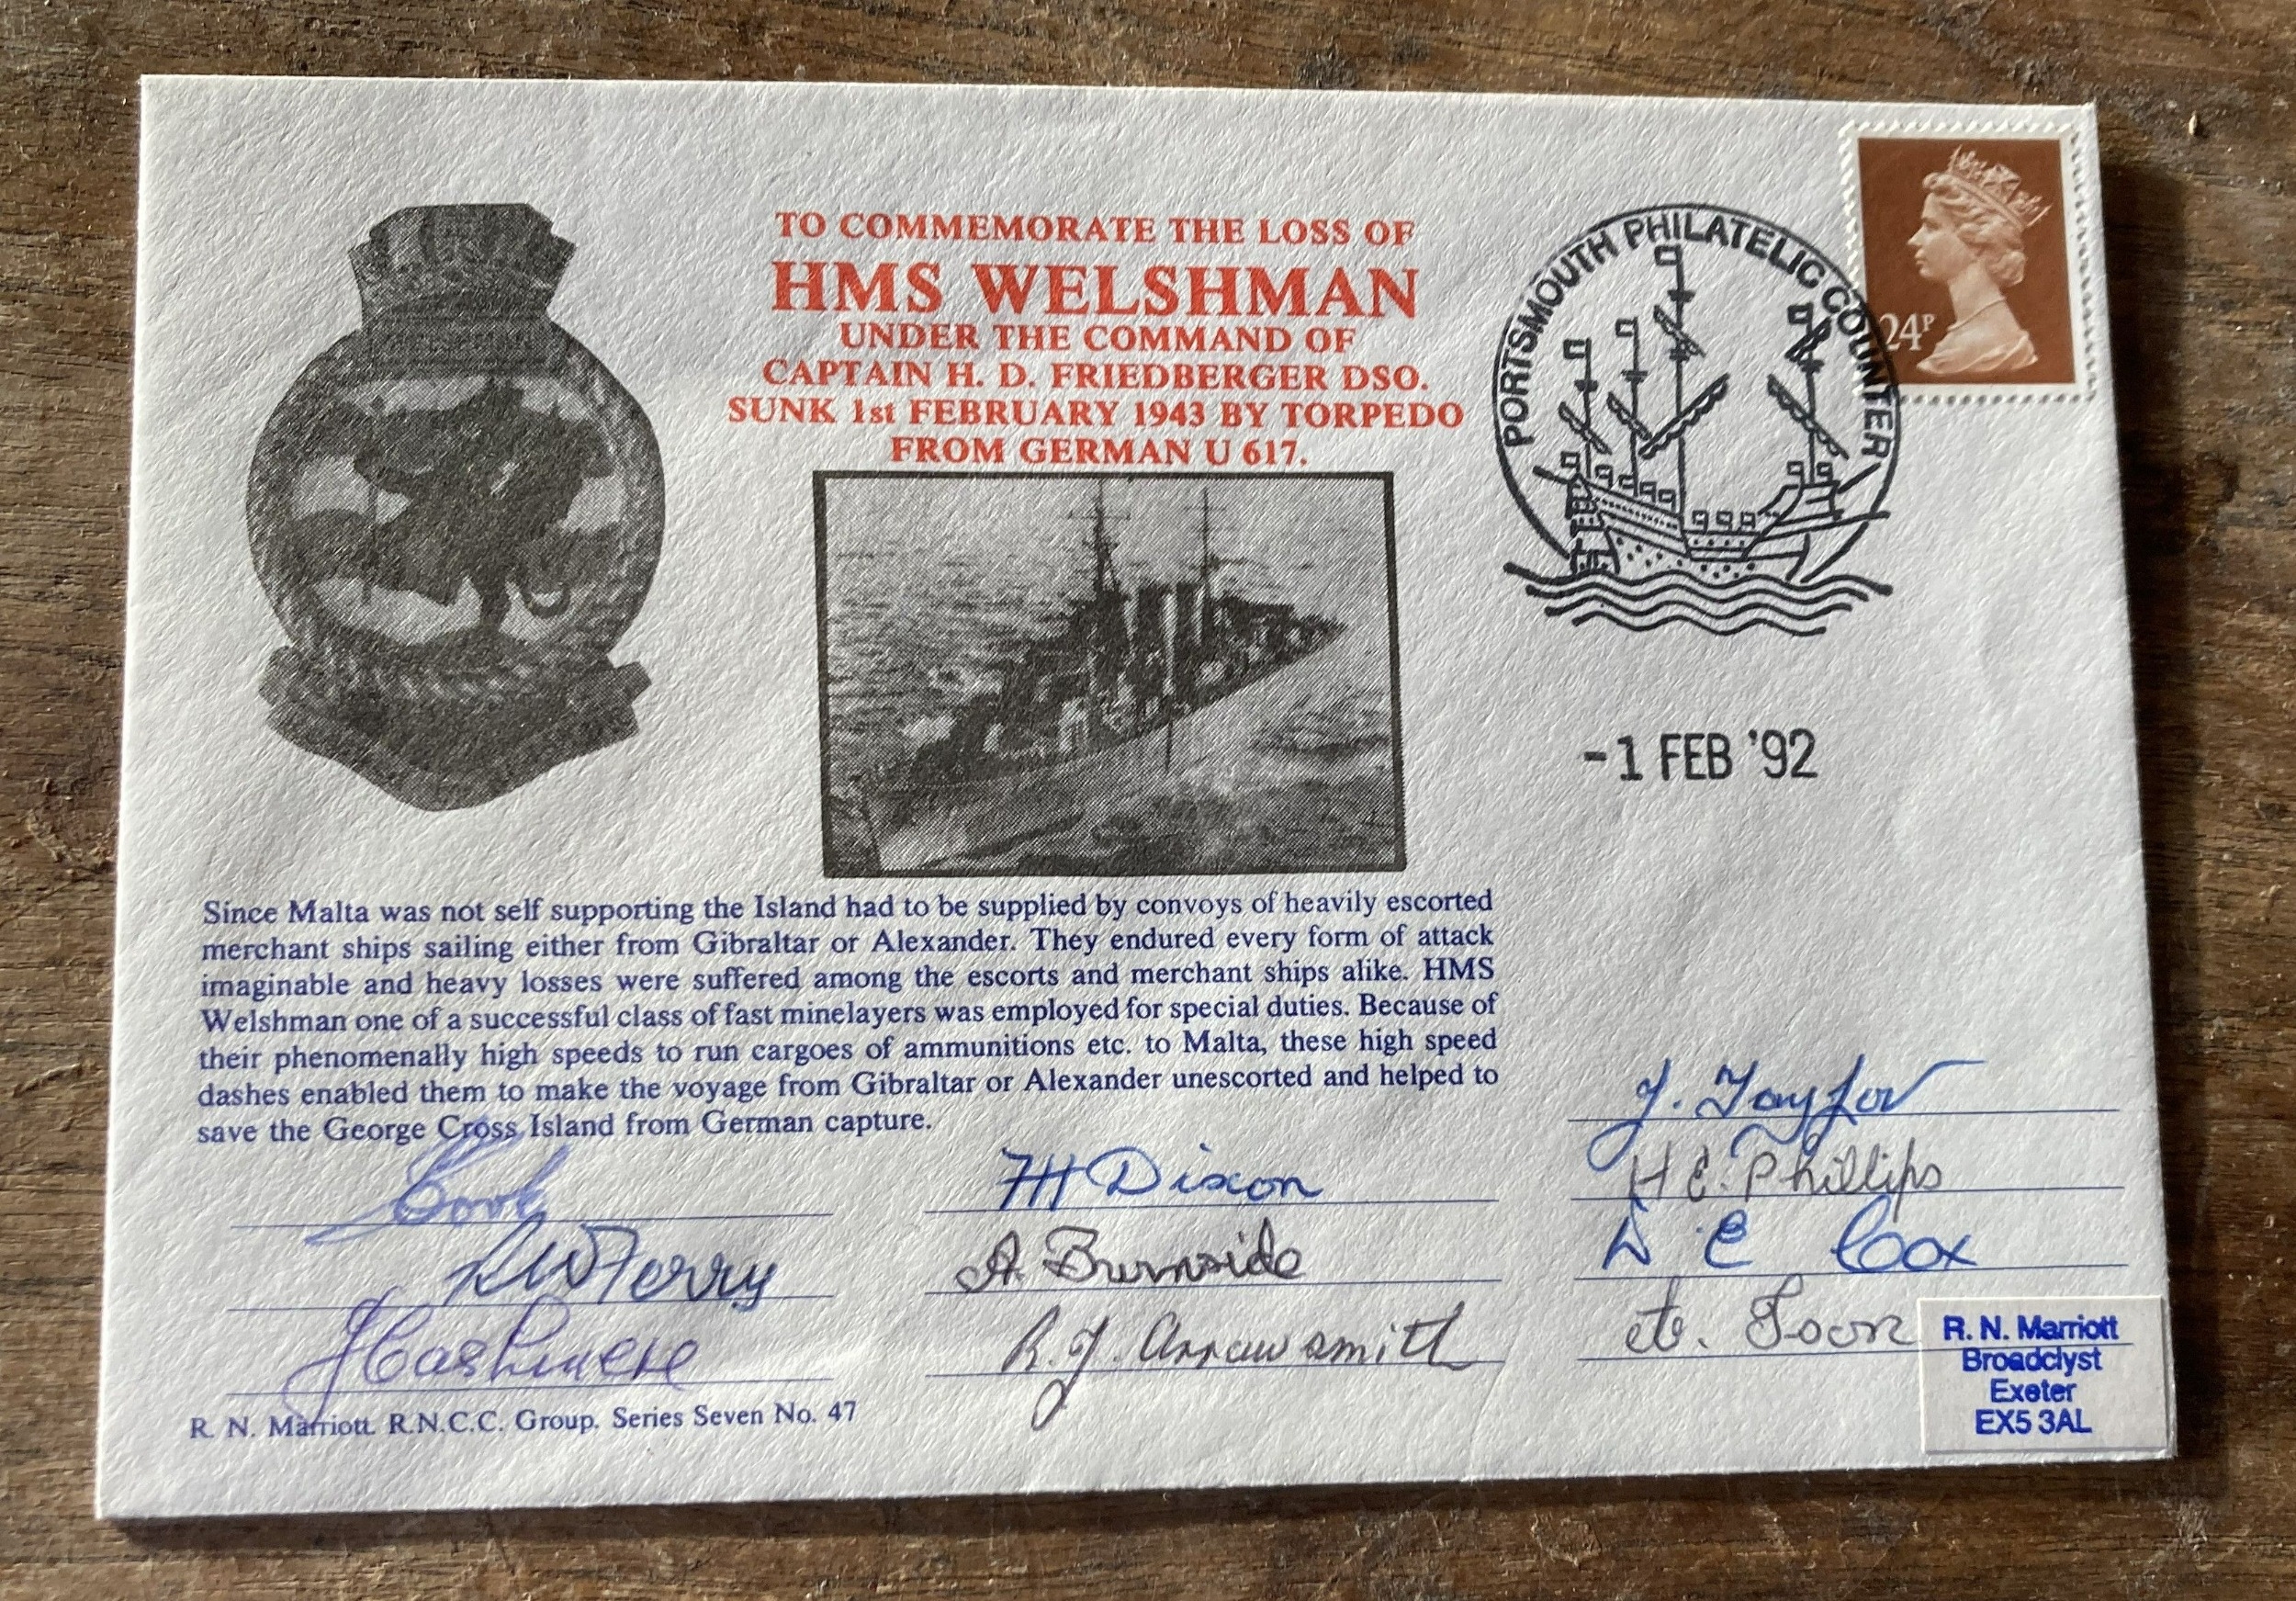 TO COMMEMORATE THE LOSS OF
HMS WELSHMAN
UNDER THE COMMAND OF
CAPTAIN H. D. FRIEDBERGER DSO.
SUNK 1st FEBRUARY 1943 BY TORPEDO
FROM GERMAN U 617.
PORTSMOUTH PHILATELIC COUNTER
24P
-1 FEB '92
Since Malta was not self supporting the Island had to be supplied by convoys of heavily escorted
merchant ships sailing either from Gibraltar or Alexander. They endured every form of attack
imaginable and heavy losses were suffered among the escorts and merchant ships alike. HMS
Welshman one of a successful class of fast minelayers was employed for special duties. Because of
their phenomenally high speeds to run cargoes of ammunitions etc. to Malta, these high speed
dashes enabled them to make the voyage from Gibraltar or Alexander unescorted and helped to
save the George Cross Island from German capture.
Cook
Ferry
J Cashmere
FH Dixon
A. Burnside
R. J. Arrowsmith
J. Taylor
H E. Phillips
D E Cox
Toon
R. N. Marriott. R.N.C.C. Group. Series Seven No. 47
R. N. Marriott
Broadclyst
Exeter
EX5 3AL